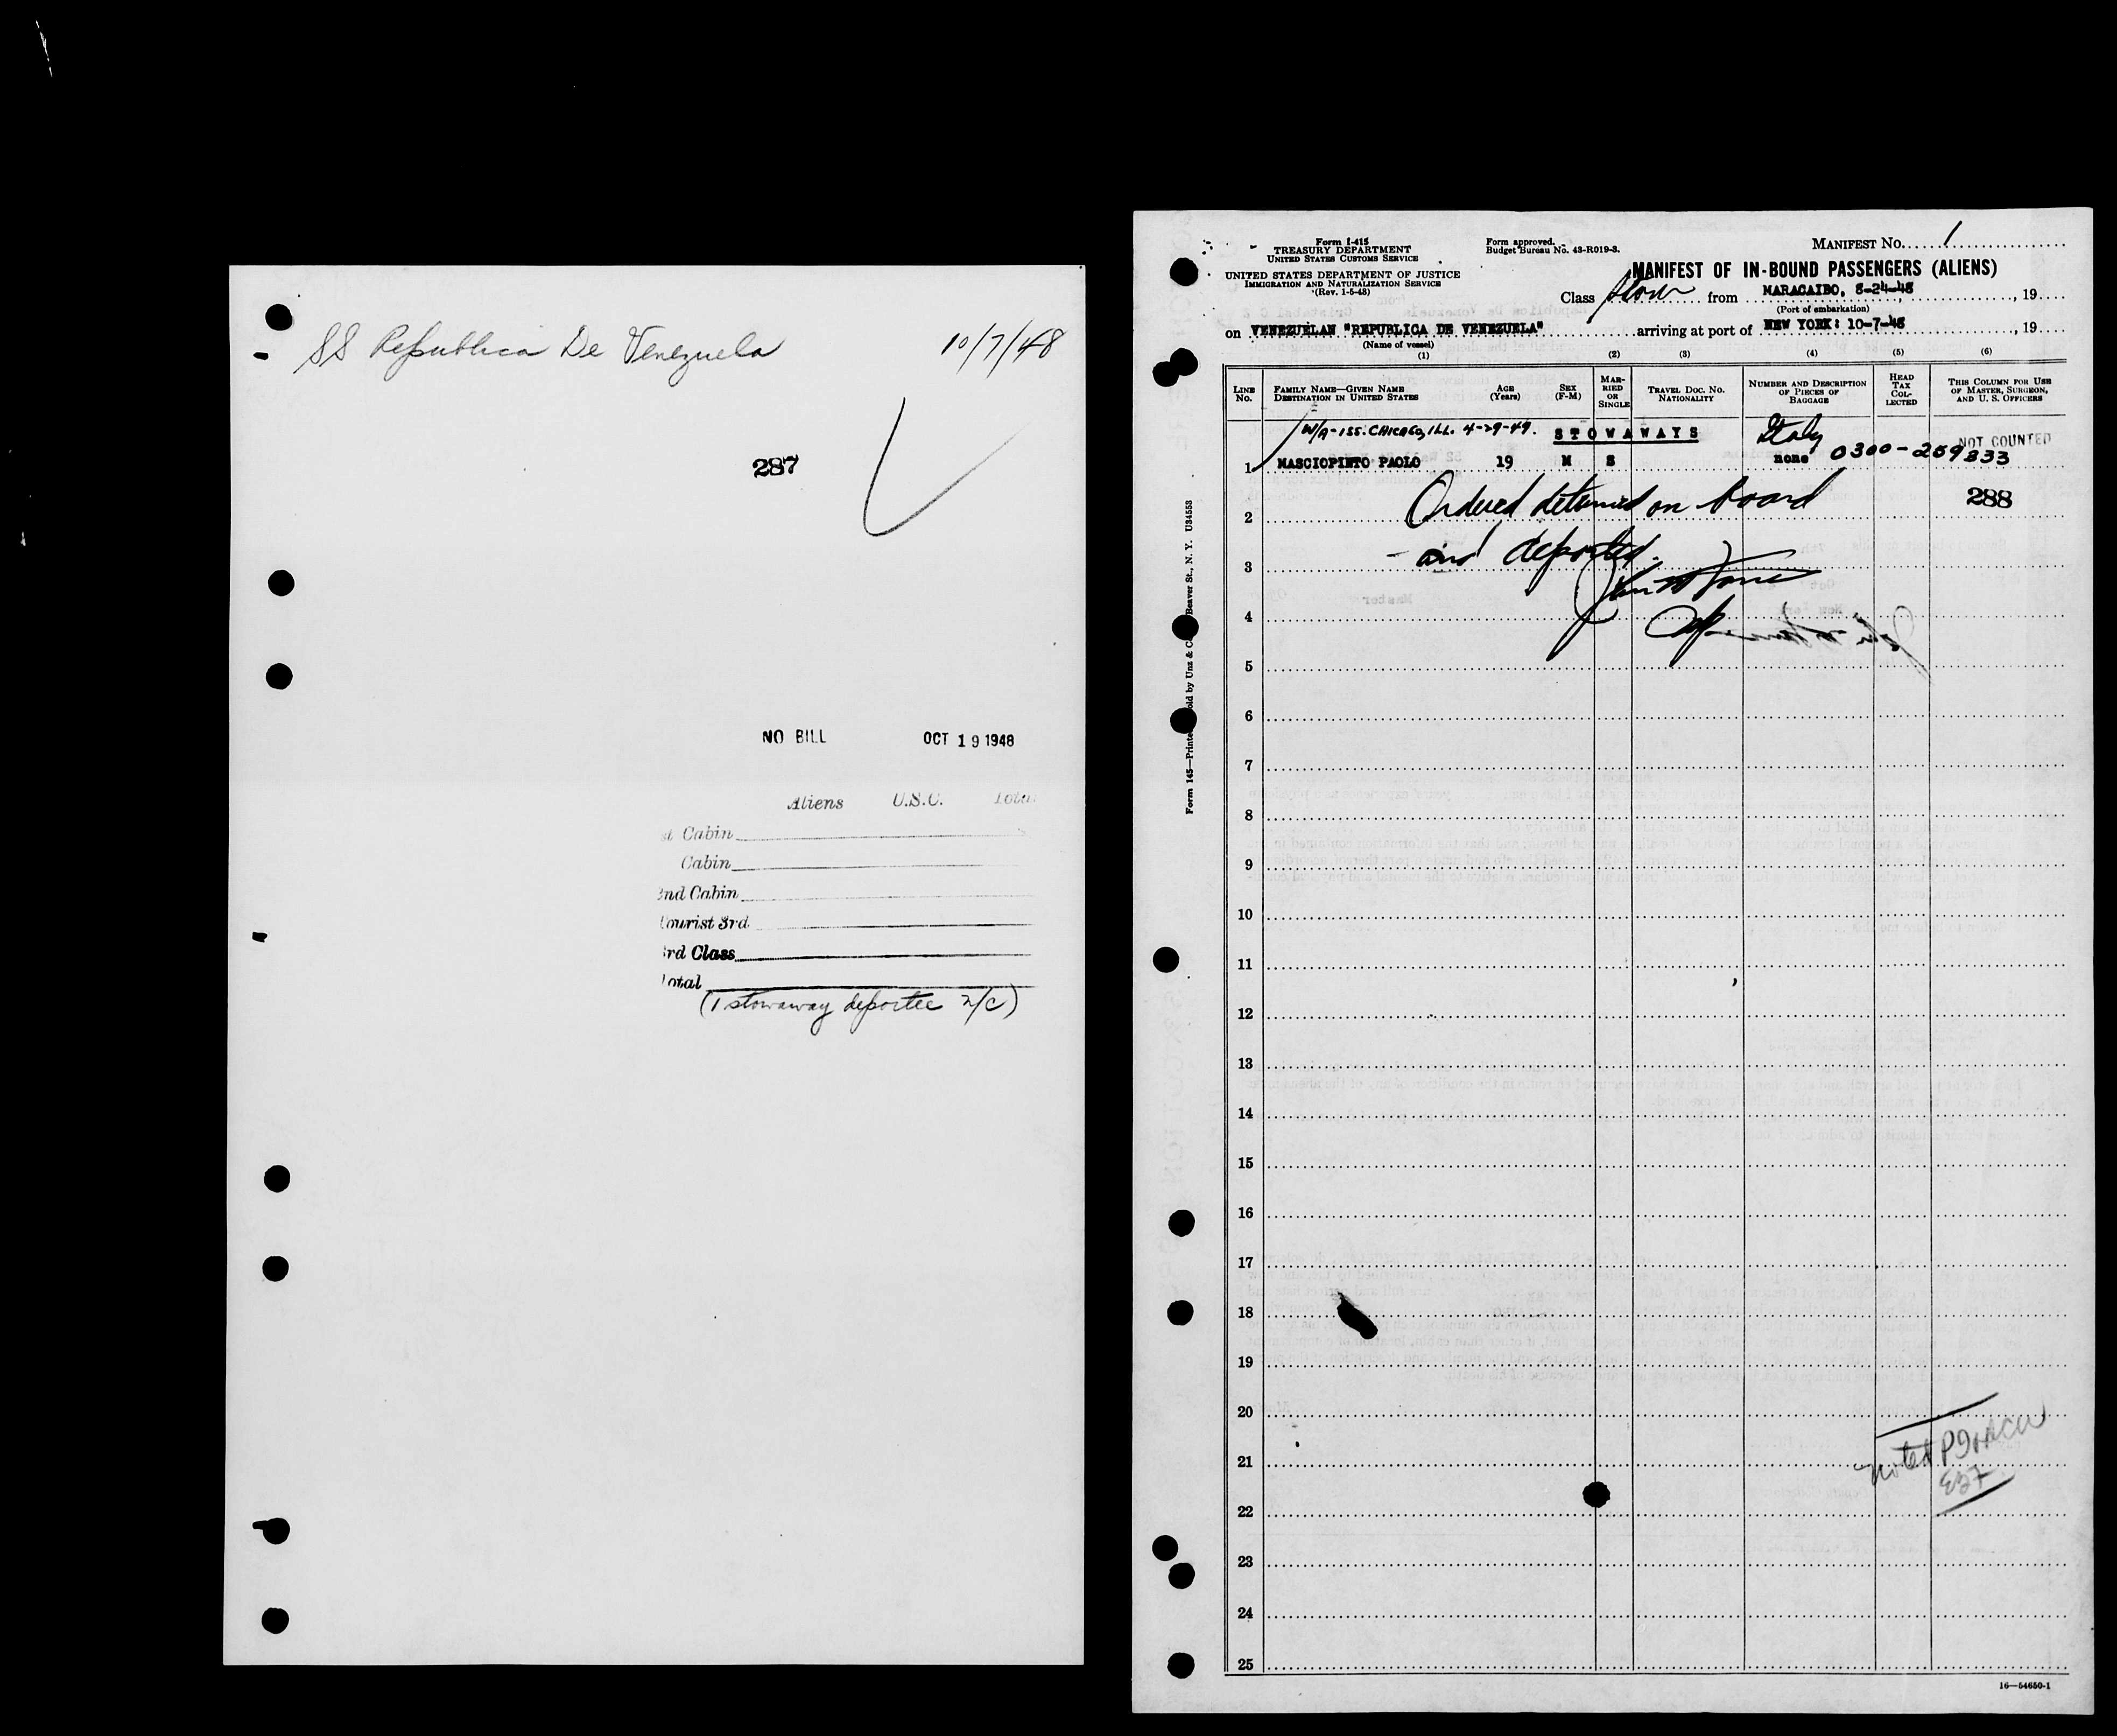 SS Republica De Venezuela 10/7/48
287
NO BILL OCT 19 1948
Aliens U.S.C. Total
st Cabin
Cabin
2nd Cabin
Tourist 3rd
3rd Class
Total
(1 stowaway deportee n/c)
Form I-415
TREASURY DEPARTMENT
UNITED STATES CUSTOMS SERVICE
UNITED STATES DEPARTMENT OF JUSTICE
IMMIGRATION AND NATURALIZATION SERVICE
(Rev. 1-5-48)
Form approved.
Budget Bureau No. 43-R019-3.
MANIFEST No. 1
MANIFEST OF IN-BOUND PASSENGERS (ALIENS)
Class Stow from MARACAIBO, 8-24-48, 19
(Port of embarkation)
on VENEZUELAN "REPUBLICA DE VENEZUELA" arriving at port of NEW YORK: 10-7-48, 19
(Name of vessel)
(1) (2) (3) (4) (5) (6)
LINE No.
FAMILY NAME—GIVEN NAME
DESTINATION IN UNITED STATES
AGE (Years)
SEX (F-M)
MARRIED OR SINGLE
TRAVEL DOC. NO. NATIONALITY
NUMBER AND DESCRIPTION OF PIECES OF BAGGAGE
HEAD TAX COLLECTED
THIS COLUMN FOR USE OF MASTER, SURGEON, AND U. S. OFFICERS
W/A-155. CHICAGO, ILL. 4-29-49. STOWAWAYS Italy NOT COUNTED
1 MASCIOPINTO PAOLO 19 M S none 0300-259833
288
2 Ordered detained on board
3 and deported.
4
5
6
7
8
9
10
11
12
13
14
15
16
17
18
19
20
21 noted
22
23
24
25
16—54650-1